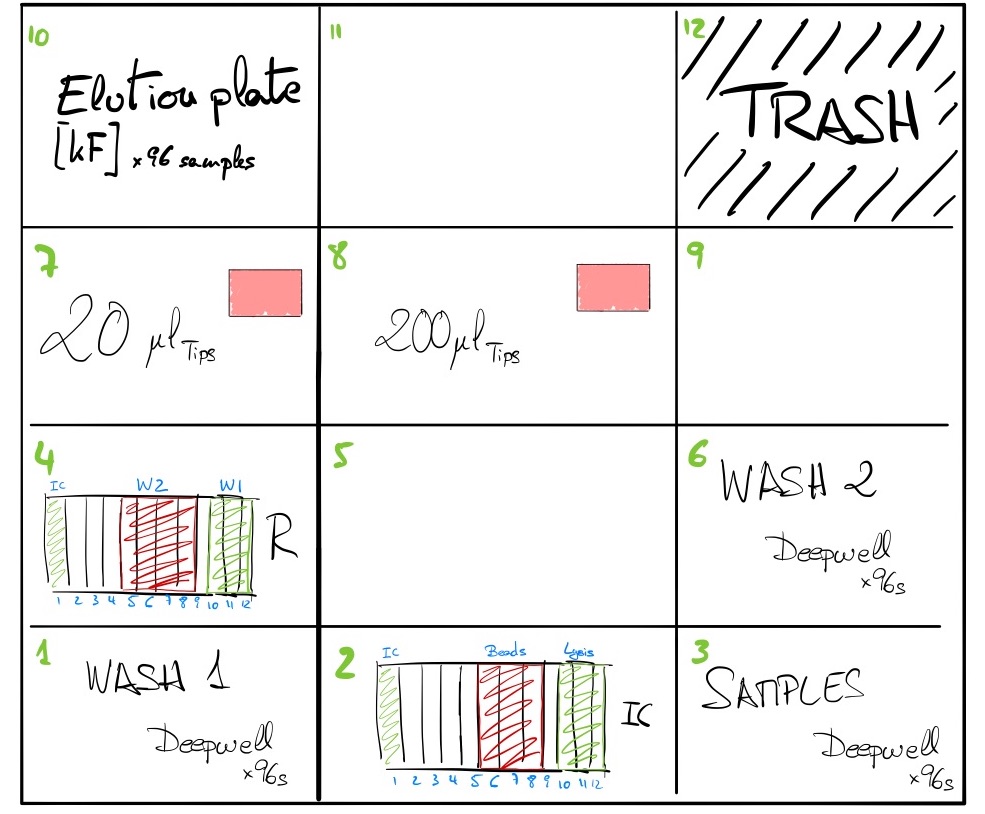 10
Elution plate
[kF] x96 samples
11
12
TRASH
7
20 µl Tips
8
200µl Tips
9
4
IC W2 W1
R
1 2 3 4 5 6 7 8 9 10 11 12
5
6
WASH 2
Deepwell
x96s
1
WASH 1
Deepwell
x96s
2
IC Beads Lysis
IC
1 2 3 4 5 6 7 8 9 10 11 12
3
SAMPLES
Deepwell
x96s